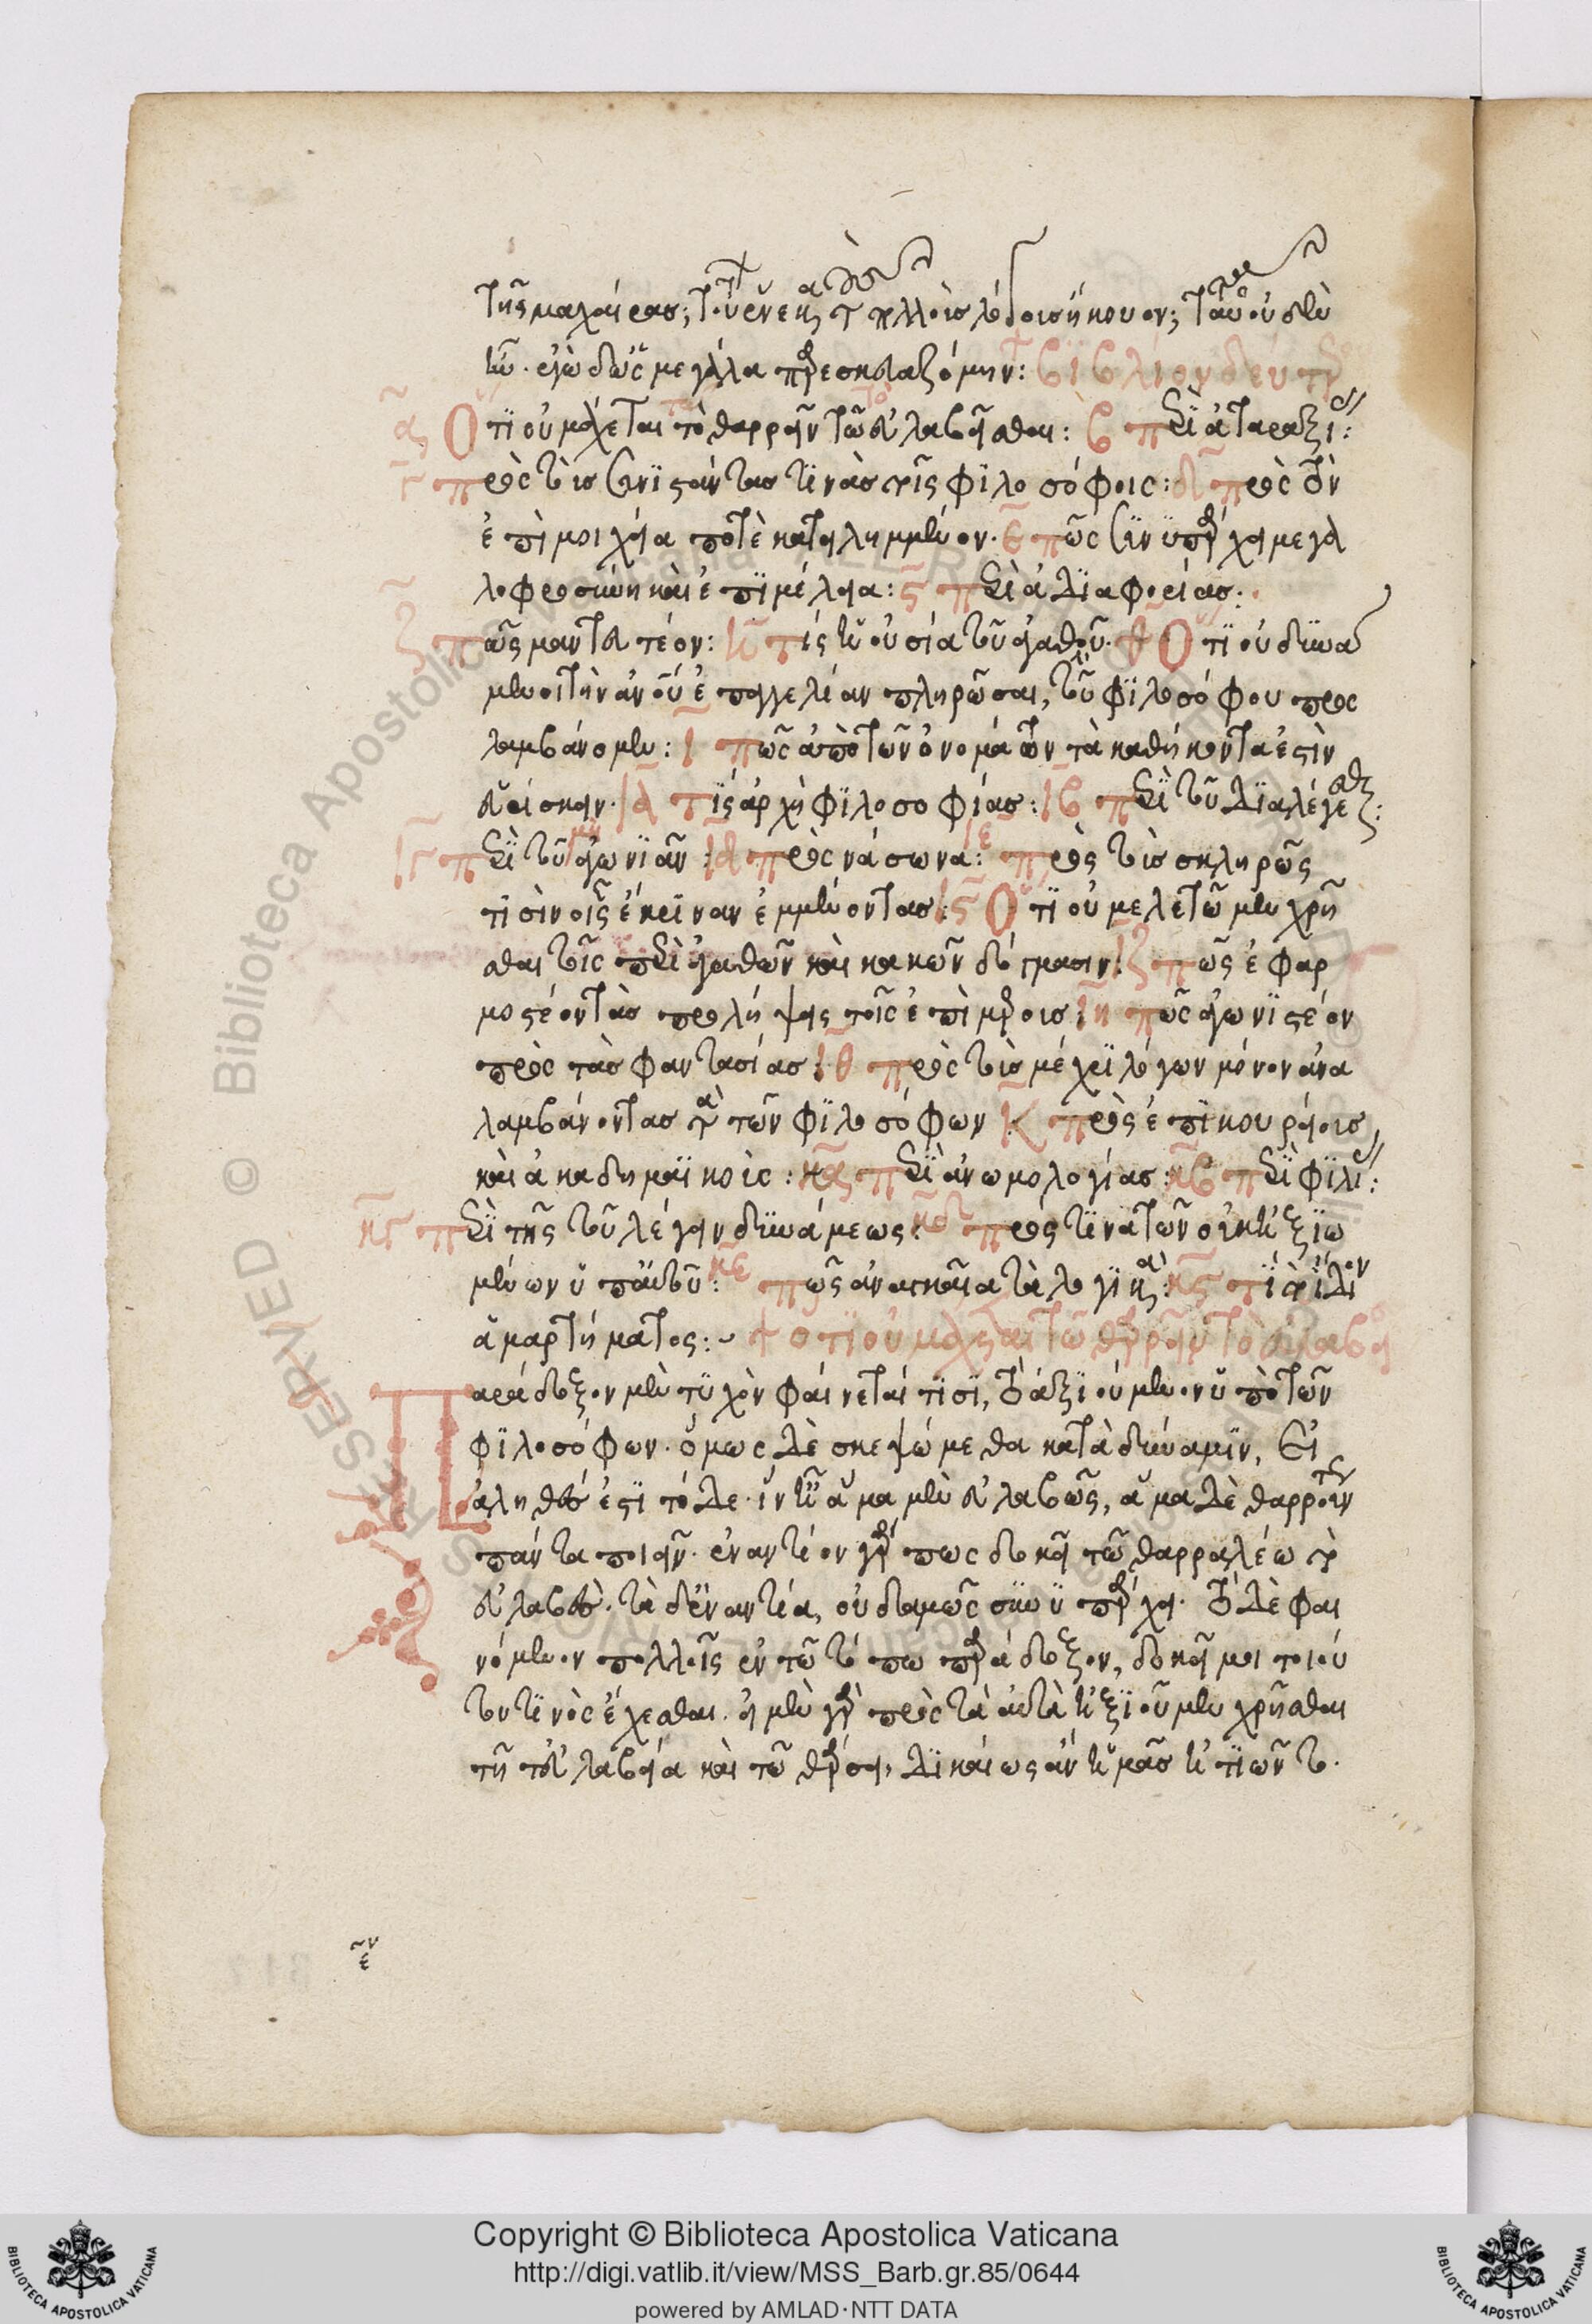 τῆς μαχαίρας; τούτων ἕνεκα τοῖς πολλοῖς λοιδοροῖς ἤκουον; ταῦτα οὐδὲν
ἦν. ἐγὼ δ' ὡς μεγάλα παρεσκευαζόμην: βιβλίον δεύτερον
α Ὅτι οὐ μάχεται τὸ θαρρεῖν τῷ εὐλαβεῖσθαι: β περὶ ἀταραξίας:
γ πρὸς τοὺς συνιστάντας τινὰς τοῖς φιλοσόφοις: δ πρὸς τὸν
ἐπὶ μοιχεία ποτὲ κατειλημμένον. ε πῶς συνυπάρχει μεγα
λοφροσύνη καὶ ἐπιμέλεια: ς περὶ ἀδιαφορίας:
ζ πῶς μαντευτέον: η τίς ἡ οὐσία τοῦ ἀγαθοῦ. θ Ὅτι οὐ δυνά
μενοι τὴν ἀνθρώπου ἐπαγγελίαν πληρῶσαι, τὴν φιλοσόφου προς
λαμβάνομεν: ι πῶς ἀπὸ τῶν ὀνομάτων τὰ καθήκοντα ἐστὶν
εὑρίσκειν. ια τίς ἀρχὴ φιλοσοφίας: ιβ περὶ τοῦ διαλέγεσθαι:
ιγ περὶ τοῦ μὴ ἀγωνιᾶν: ιδ πρὸς νάσωνα: ιε πρὸς τοὺς σκληρῶς
τισὶν οἷς ἔκριναν ἐμμένοντας ις Ὅτι οὐ μελετῶμεν χρῆ
σθαι τοῖς περὶ ἀγαθῶν καὶ κακῶν δόγμασιν: ιζ πῶς ἐφαρ
μοστέον τὰς προλήψεις τοῖς ἐπὶ μέρους: ιη πῶς ἀγωνιστέον
πρὸς τὰς φαντασίας: ιθ πρὸς τοὺς μέχρι λόγων μόνον ἀνα
λαμβάνοντας τὰ τῶν φιλοσόφων κ πρὸς ἐπικουρείους
καὶ ἀκαδημαϊκοὺς: κα περὶ ἀνομολογίας: κβ περὶ φιλίας:
κγ περὶ τῆς τοῦ λέγειν δυνάμεως: κδ πρὸς τινα τῶν οὐκ ἠξιω
μένων ὑπ' αὐτοῦ: κε πῶς ἀναγκαῖα τὰ λογικά: κς τί τὸ ἴδιον
ἁμαρτήματος: ὅτι οὐ μάχεται τῷ θαρρεῖν τὸ εὐλαβεῖσθαι
Παράδοξον μὲν τυχὸν φαίνεταί τισι, τὸ ἀξιούμενον ὑπὸ τῶν
φιλοσόφων. ὅμως δὲ σκεψώμεθα κατὰ δύναμιν, Εἰ
ἀληθές ἐστι τόδε. ὅτι δεῖ ἅμα μὲν εὐλαβῶς, ἅμα δὲ θαρρούντως
πάντα ποιεῖν. ἐναντίον γάρ πως δοκεῖ τῷ θαρραλέω τὸ
εὐλαβὲς. τὰ δ' ἐναντία, οὐδαμῶς συνυπάρχει. τὸ δὲ φαι
νόμενον πολλοῖς ἐν τῷ τόπω παράδοξον, δοκεῖ μοι τοιού
του τινὸς ἔχεσθαι. εἰ μὲν γὰρ πρὸς τὰ αὐτὰ ἠξιοῦμεν χρῆσθαι
τῇ τ' εὐλαβεία καὶ τῷ θάρσει, δικαίως ἂν ἡμᾶς ἠτιῶντο.